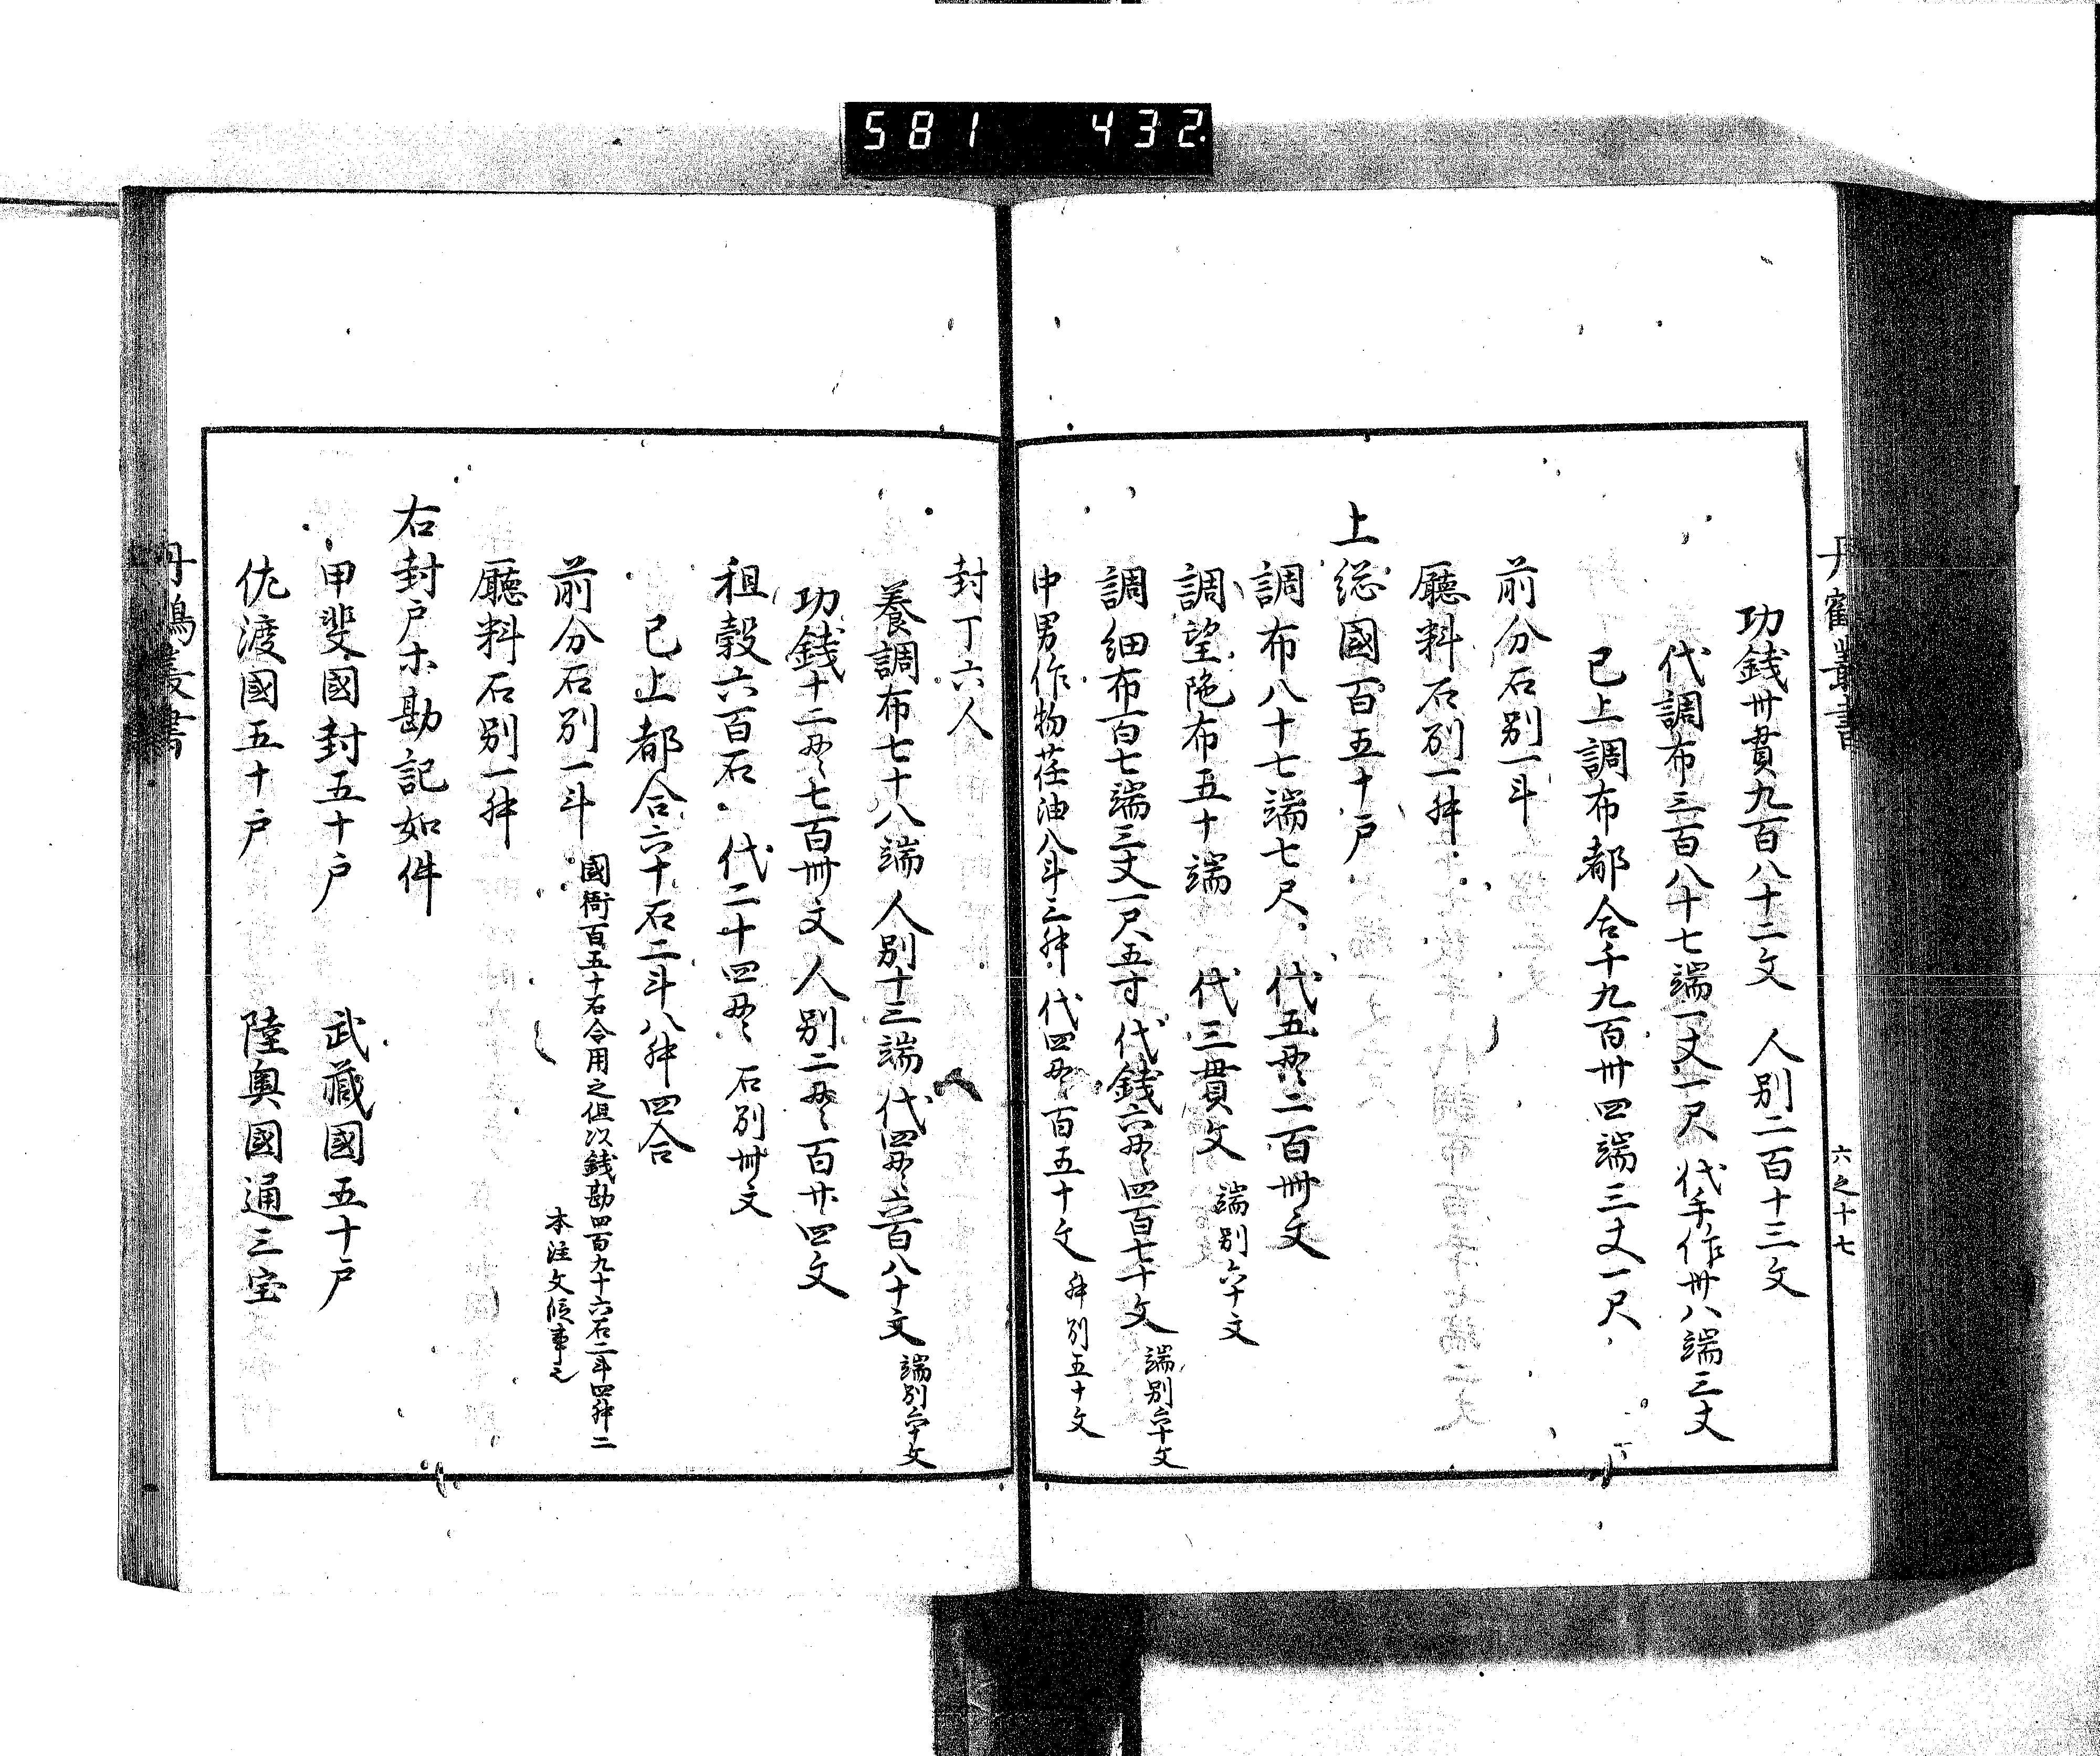 581 432
丹鶴叢書
六之十七
功錢卅貫九百八十二文 人別二百十三文
代調布三百八十七端一丈一尺 代手作卅八端三丈
已上調布都合千九百卅四端三丈一尺
前分石別一斗
廳料石別一舛
上総國百五十戶
調布八十七端七尺 代五貫二百卌文
調望陁布五十端 代三貫文 端別六十文
調細布百七端三丈一尺五寸 代錢六貫四百七十文 端別六十文
中男作物荏油八斗三舛 代四貫百五十文 舛別五十文
封丁六人
養調布七十八端 人別十三端 代四貫六百八十文 端別六十文
功錢十二貫七百卌文 人別二貫百廿四文
租穀六百石 代二十四貫 石別卌文
已上都合六十石二斗八舛四合
前分石別一斗 國衙百五十石令用之但以錢勘四百九十六石二斗四舛二
本注文
廳料石別一舛
右封戶ホ勘記如件
甲斐國封五十戶 武藏國五十戶
佐渡國五十戶 陸奥國通三宝
丹鶴叢書